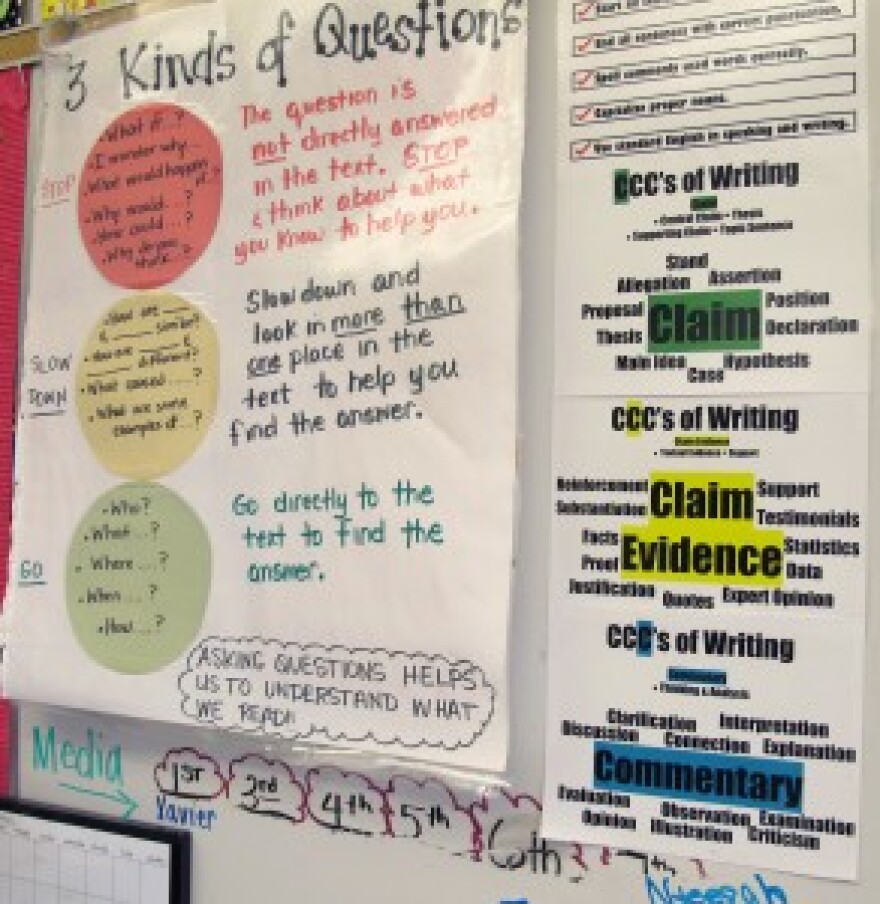 3 Kinds of Questions
STOP
• What if...?
• I wonder why...
• What would happen if...?
• Why would...?
• How could...?
• Why do you think...?
The question is
not directly answered
in the text. STOP
& think about what
you know to help you.
SLOW
DOWN
• How are ___
& ___ similar?
• How are ___ &
___ different?
• What caused ...?
• What are some
examples of...?
Slow down and
look in more than
one place in the
text to help you
find the answer.
GO
• Who?
• What...?
• Where...?
• When...?
• How...?
Go directly to the
text to find the
answer.
ASKING QUESTIONS HELPS
US TO UNDERSTAND WHAT
WE READ
End all sentences with correct punctuation.
Spell commonly used words correctly.
Capitalize proper nouns.
Use standard English in speaking and writing.
CCC's of Writing
Claim
• Central Claim • Thesis
• Supporting Claim • Topic Sentence
Stand
Allegation Assertion
Proposal Claim Position
Thesis Declaration
Main Idea Hypothesis
Case
CCC's of Writing
Claim Evidence
• Textual Evidence • Support
Reinforcement Claim Support
Substantiation Testimonials
Facts Evidence Statistics
Proof Data
Justification Quotes Expert Opinion
CCC's of Writing
Commentary
• Thinking & Analysis
Clarification Interpretation
Discussion Connection Explanation
Commentary
Evaluation Observation Examination
Opinion Illustration Criticism
Media
1ST 2nd 4th 5th 6th 7th
Xavier
Nyeezah